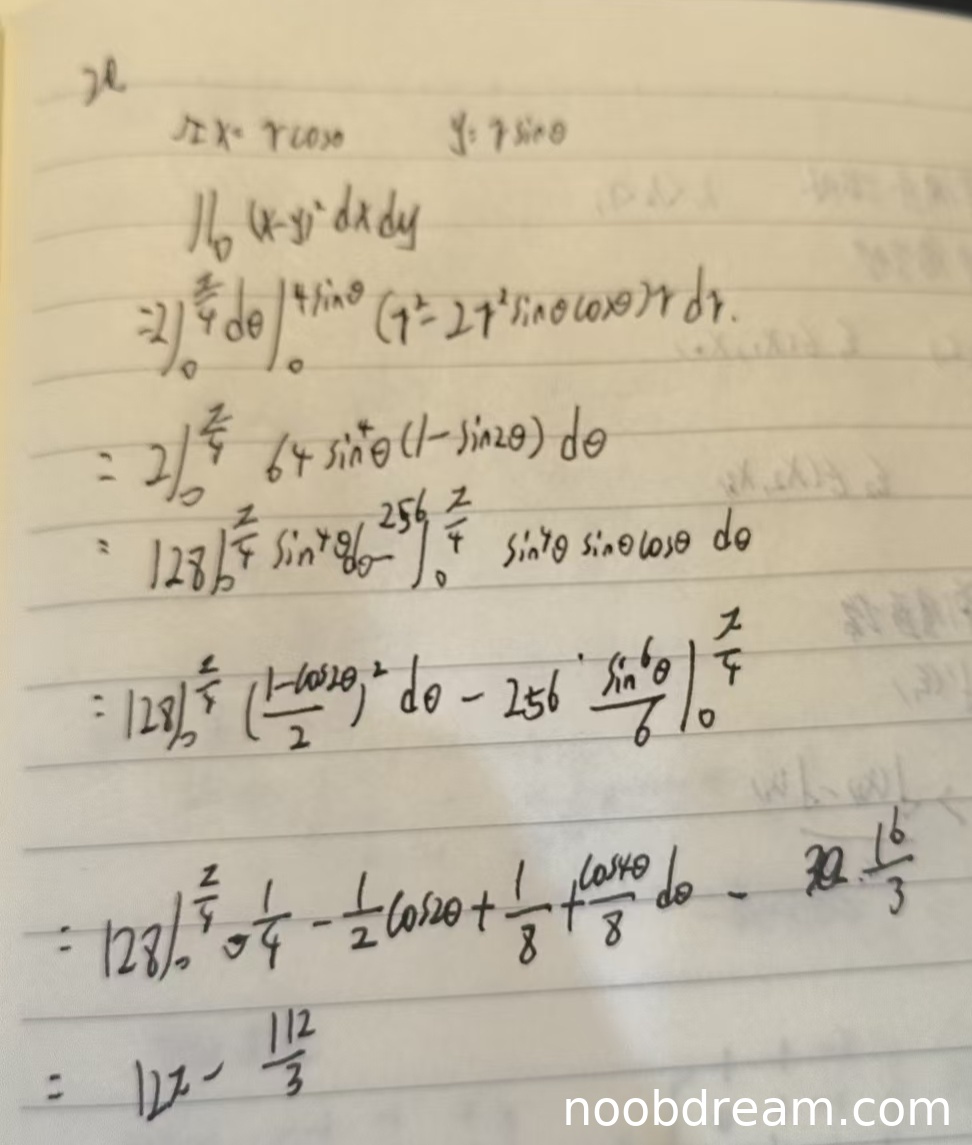 20
解 x = r cosθ y = r sinθ
∬_D (x-y)² dx dy
= 2∫_0^{π/4} dθ ∫_0^{4sinθ} (r² - 2r² sinθ cosθ) r dr.
= 2∫_0^{π/4} 64 sin⁴θ (1 - sin2θ) dθ
= 128∫_0^{π/4} sin⁴θ dθ - 256 ∫_0^{π/4} sin⁴θ sinθ cosθ dθ
= 128∫_0^{π/4} (\frac{1-cos2θ}{2})² dθ - 256 · \frac{sin⁶θ}{6} |_0^{π/4}
= 128∫_0^{π/4} \frac{1}{4} - \frac{1}{2} cos2θ + \frac{1}{8} + \frac{cos4θ}{8} dθ - \frac{16}{3}
= 12π - \frac{112}{3}
noobdream.com